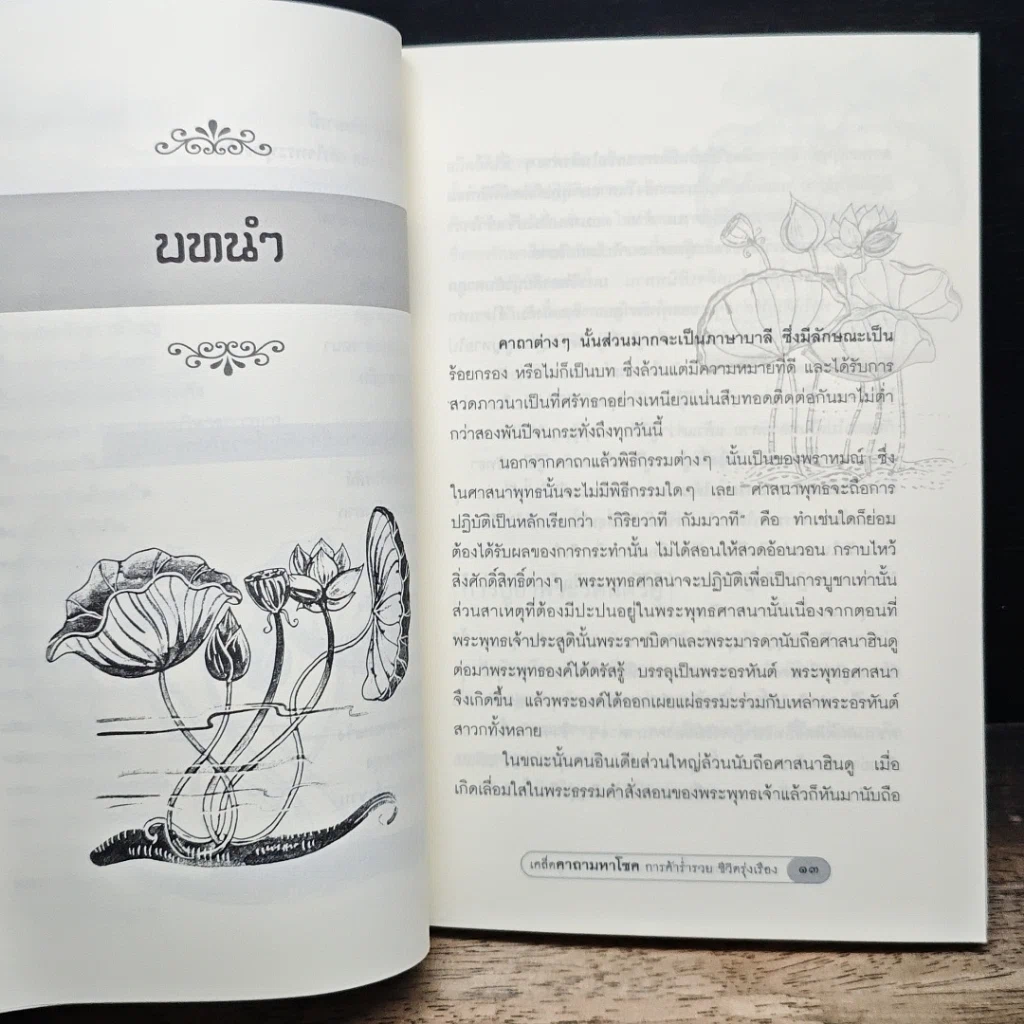 บทนำ
คาถาต่างๆ นั้นส่วนมากจะเป็นภาษาบาลี ซึ่งมีลักษณะเป็น
ร้อยกรอง หรือไม่ก็เป็นบท ซึ่งล้วนแต่มีความหมายที่ดี และได้รับการ
สวดภาวนาเป็นที่ศรัทธาอย่างเหนียวแน่นสืบทอดติดต่อกันมาไม่ต่ำ
กว่าสองพันปีจนกระทั่งถึงทุกวันนี้
นอกจากคาถาแล้วพิธีกรรมต่างๆ นั้นเป็นของพราหมณ์ ซึ่ง
ในศาสนาพุทธนั้นจะไม่มีพิธีกรรมใดๆ เลย ศาสนาพุทธจะถือการ
ปฏิบัติเป็นหลักเรียกว่า "กิริยวาที กัมมวาที" คือ ทำเช่นใดก็ย่อม
ต้องได้รับผลของการกระทำนั้น ไม่ได้สอนให้สวดอ้อนวอน กราบไหว้
สิ่งศักดิ์สิทธิ์ต่างๆ พระพุทธศาสนาจะปฏิบัติเพื่อเป็นการบูชาเท่านั้น
ส่วนสาเหตุที่ต้องมีปะปนอยู่ในพระพุทธศาสนานั้นเนื่องจากตอนที่
พระพุทธเจ้าประสูตินั้นพระราชบิดาและพระมารดานับถือศาสนาฮินดู
ต่อมาพระพุทธองค์ได้ตรัสรู้ บรรลุเป็นพระอรหันต์ พระพุทธศาสนา
จึงเกิดขึ้น แล้วพระองค์ได้ออกเผยแผ่ธรรมะร่วมกับเหล่าพระอรหันต์
สาวกทั้งหลาย
ในขณะนั้นคนอินเดียส่วนใหญ่ล้วนนับถือศาสนาฮินดู เมื่อ
เกิดเลื่อมใสในพระธรรมคำสั่งสอนของพระพุทธเจ้าแล้วก็หันมานับถือ
เคล็ดคาถามหาโชค การค้าร่ำรวย ชีวิตรุ่งเรือง ๑๓